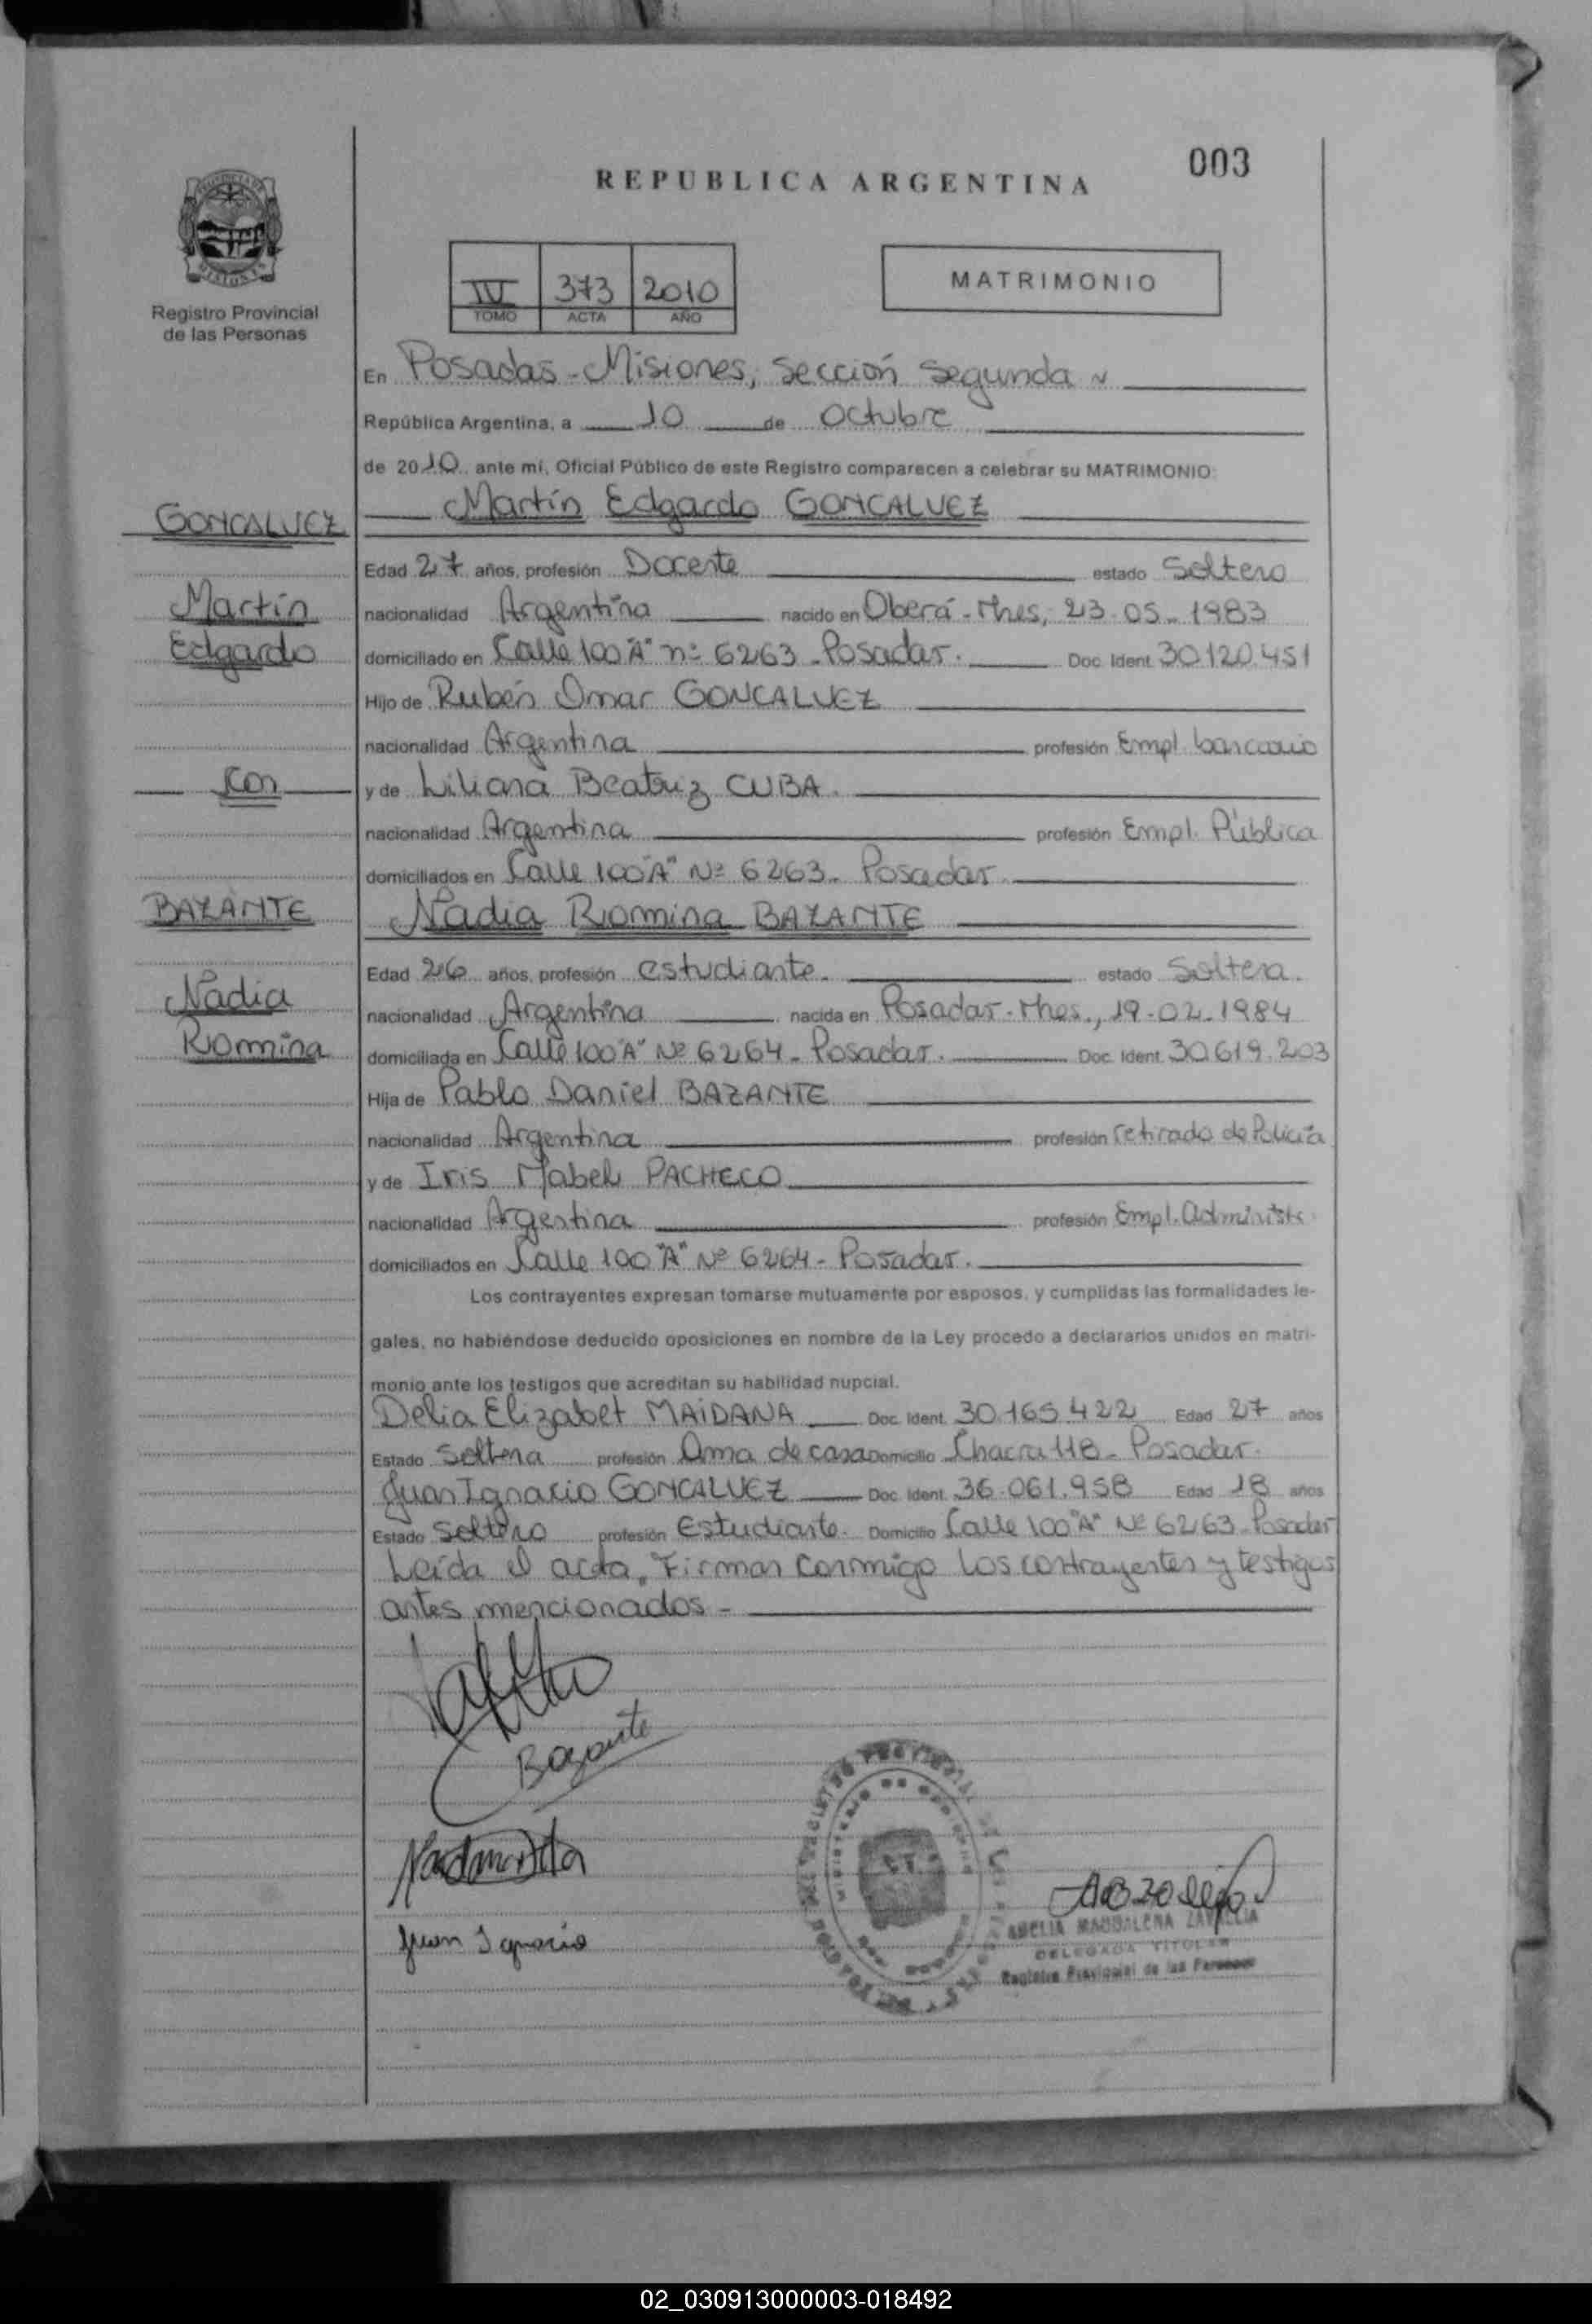 003
REPUBLICA ARGENTINA
Registro Provincial
de las Personas
IV 373 2010
TOMO ACTA AÑO
MATRIMONIO
En Posadas - Misiones, Sección Segunda
República Argentina, a 10 de Octubre
de 2010 ante mí, Oficial Público de este Registro comparecen a celebrar su MATRIMONIO:
GONCALVEZ
Martín Edgardo GONCALVEZ
Edad 27 años, profesión Docente estado Soltero
Martín
nacionalidad Argentina nacido en Oberá - Mnes, 23-05-1983
Edgardo
domiciliado en Calle 100 "A" nº 6263 - Posadas. Doc. Ident. 30.120.451
Hijo de Rubén Omar GONCALVEZ
nacionalidad Argentina profesión Empl. bancario
con
y de Liliana Beatriz CUBA.
nacionalidad Argentina profesión Empl. Pública
domiciliados en Calle 100 "A" Nº 6263 - Posadas.
BAZANTE
Nadia Romina BAZANTE
Edad 26 años, profesión estudiante. estado Soltera.
Nadia
nacionalidad Argentina nacida en Posadas - Mnes., 19-02-1984
Romina
domiciliada en Calle 100 "A" Nº 6264 - Posadas. Doc. Ident. 30.619.203
Hija de Pablo Daniel BAZANTE
nacionalidad Argentina profesión retirado de Policía
y de Iris Mabel PACHECO
nacionalidad Argentina profesión Empl. Administ.
domiciliados en Calle 100 "A" Nº 6264 - Posadas.
Los contrayentes expresan tomarse mutuamente por esposos, y cumplidas las formalidades le-
gales, no habiéndose deducido oposiciones en nombre de la Ley procedo a declararlos unidos en matri-
monio ante los testigos que acreditan su habilidad nupcial.
Delia Elizabet MAIDANA Doc. Ident. 30.165.422 Edad 27 años
Estado Soltera profesión Ama de casa Domicilio Chacra 118 - Posadas.
Juan Ignacio GONCALVEZ Doc. Ident. 36.061.958 Edad 18 años
Estado Soltero profesión Estudiante. Domicilio Calle 100 "A" Nº 6263 - Posadas
Leída el acta, Firman conmigo los contrayentes y testigos
antes mencionados -
Bazante
Juan Ignacio
AMELIA MAGDALENA
DELEGADA TITULAR
Registro Provincial de las Personas
02_030913000003-018492